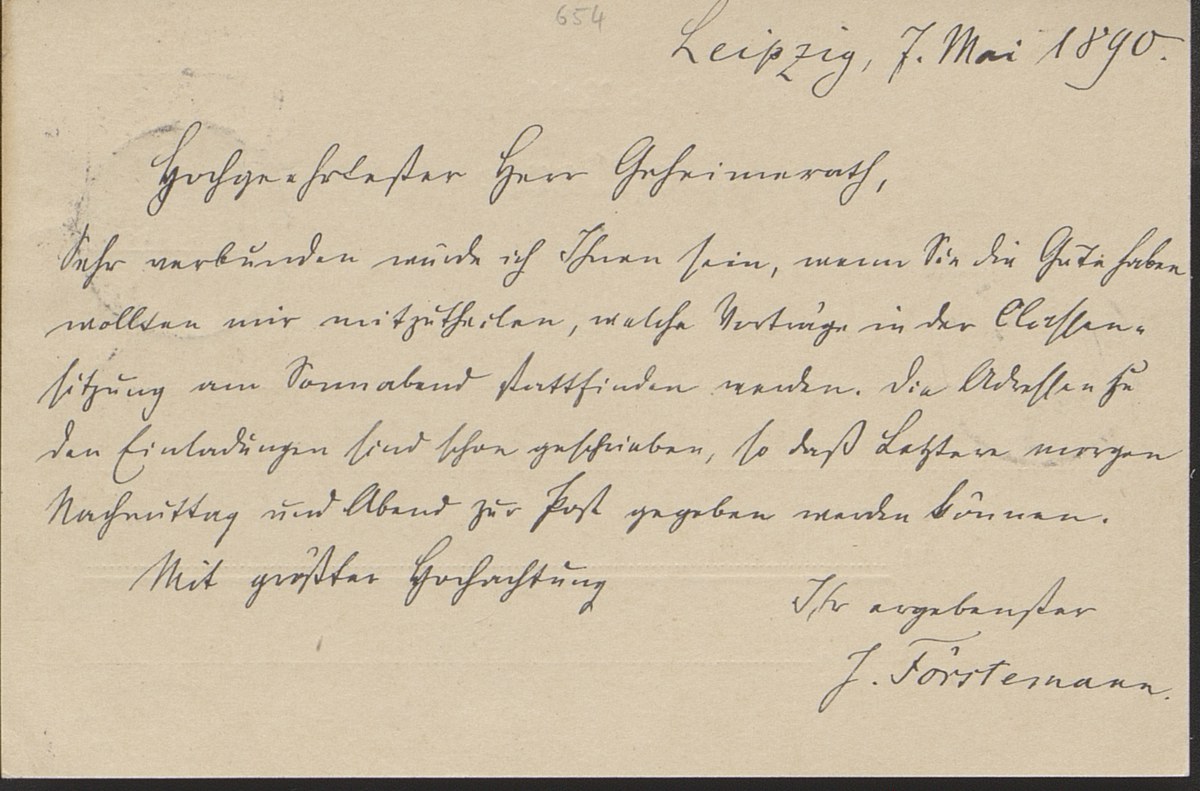 654
Leipzig, 7. Mai 1890.
Hochgeehrtester Herr Geheimerath,
Sehr verbunden würde ich Ihnen sein, wenn Sie die Güte haben
wollten mir mitzutheilen, welche Vorträge in der Classen-
sitzung am Sonnabend stattfinden werden. Die Adressen zu
den Einladungen sind schon geschrieben, so daß Letztere morgen
Nachmittag und Abend zur Post gegeben werden können.
Mit größter Hochachtung
Ihr ergebenster
J. Förstemann.